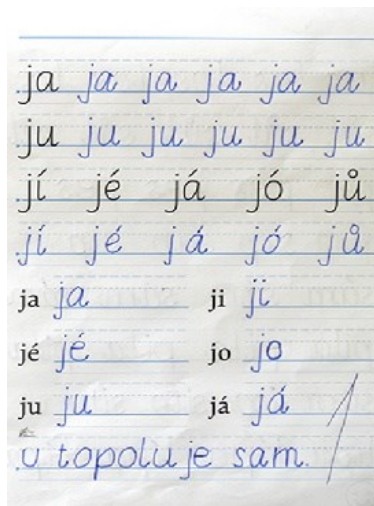 ja ja ja ja ja ja
ju ju ju ju ju ju
jí jé já jó jů
jí jé já jó jů
ja ja ji ji
jé jé jo jo
ju ju já já
u topolu je sam.